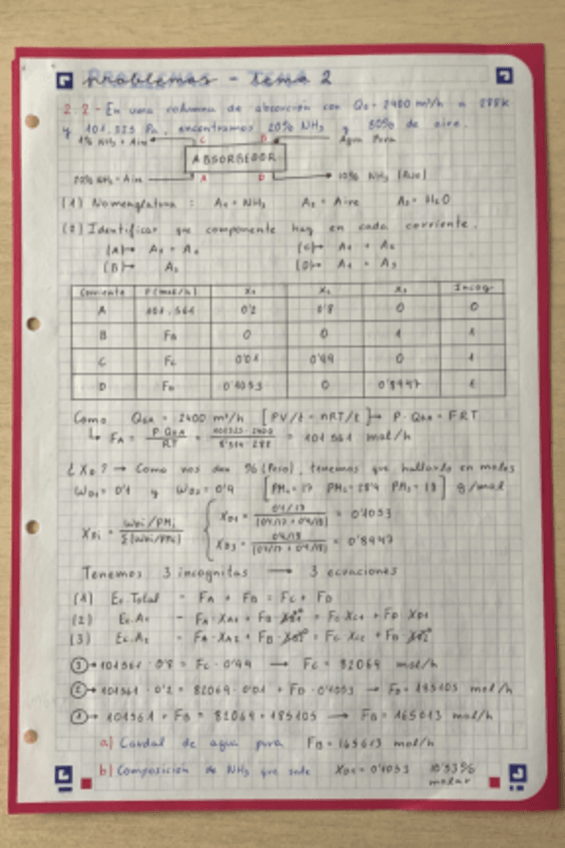 Problemas - Tema 2
2.2 - En una columna de absorción con QA = 2400 m³/h a 288K
y 101.325 Pa, encontramos 20% NH₃ y 80% de aire.
1% NH₃ + Aire C B Agua Pura
ABSORBEDOR
20% NH₃ + Aire A D 10% NH₃ (Peso)
(1) Nomenclatura : A₁ = NH₃ A₂ = Aire A₃ = H₂O
(2) Identificar que componente hay en cada corriente.
(A)→ A₁ + A₂ (C)→ A₁ + A₂
(B)→ A₃ (D)→ A₁ + A₃
Corriente F(mol/h) X₁ X₂ X₃ Incog
A 101.561 0'2 0'8 0 0
B FB 0 0 1 1
C FC 0'01 0'99 0 1
D FD 0'1053 0 0'8947 1
Como QGA = 2400 m³/h [PV/t = nRT/t]→ P·QGA = FRT
↳ FA = P·QGA/RT = 101325·2400/8'314·288 = 101561 mol/h
¿XD? → Como nos dan %(Peso), tenemos que hallarlo en moles
WD1 = 0'1 y WD3 = 0'9 [PM₁ = 17 PM₂ = 28'9 PM₃ = 18] g/mol
XDi = WDi/PMi / Σ(WDi/PMi) XD1 = 0'1/17 / (0'1/17 + 0'9/18) = 0'1053
XD3 = 0'9/18 / (0'1/17 + 0'9/18) = 0'8947
Tenemos 3 incognitas → 3 ecuaciones
(1) Ec. Total - FA + FB = FC + FD
(2) Ec. A₁ - FA·XA1 + FB·XB1⁰ = FC·XC1 + FD·XD1
(3) Ec. A₂ - FA·XA2 + FB·XB2⁰ = FC·XC2 + FD·XD2⁰
③→ 101561·0'8 = FC·0'99 → FC = 82069 mol/h
②→ 101561·0'2 = 82069·0'01 + FD·0'1053 → FD = 185105 mol/h
①→ 101561 + FB = 82069 + 185105 → FB = 165613 mol/h
a) Caudal de agua pura FB = 165613 mol/h
b) Composición de NH₃ que sale XD1 = 0'1053 10'53%
molar